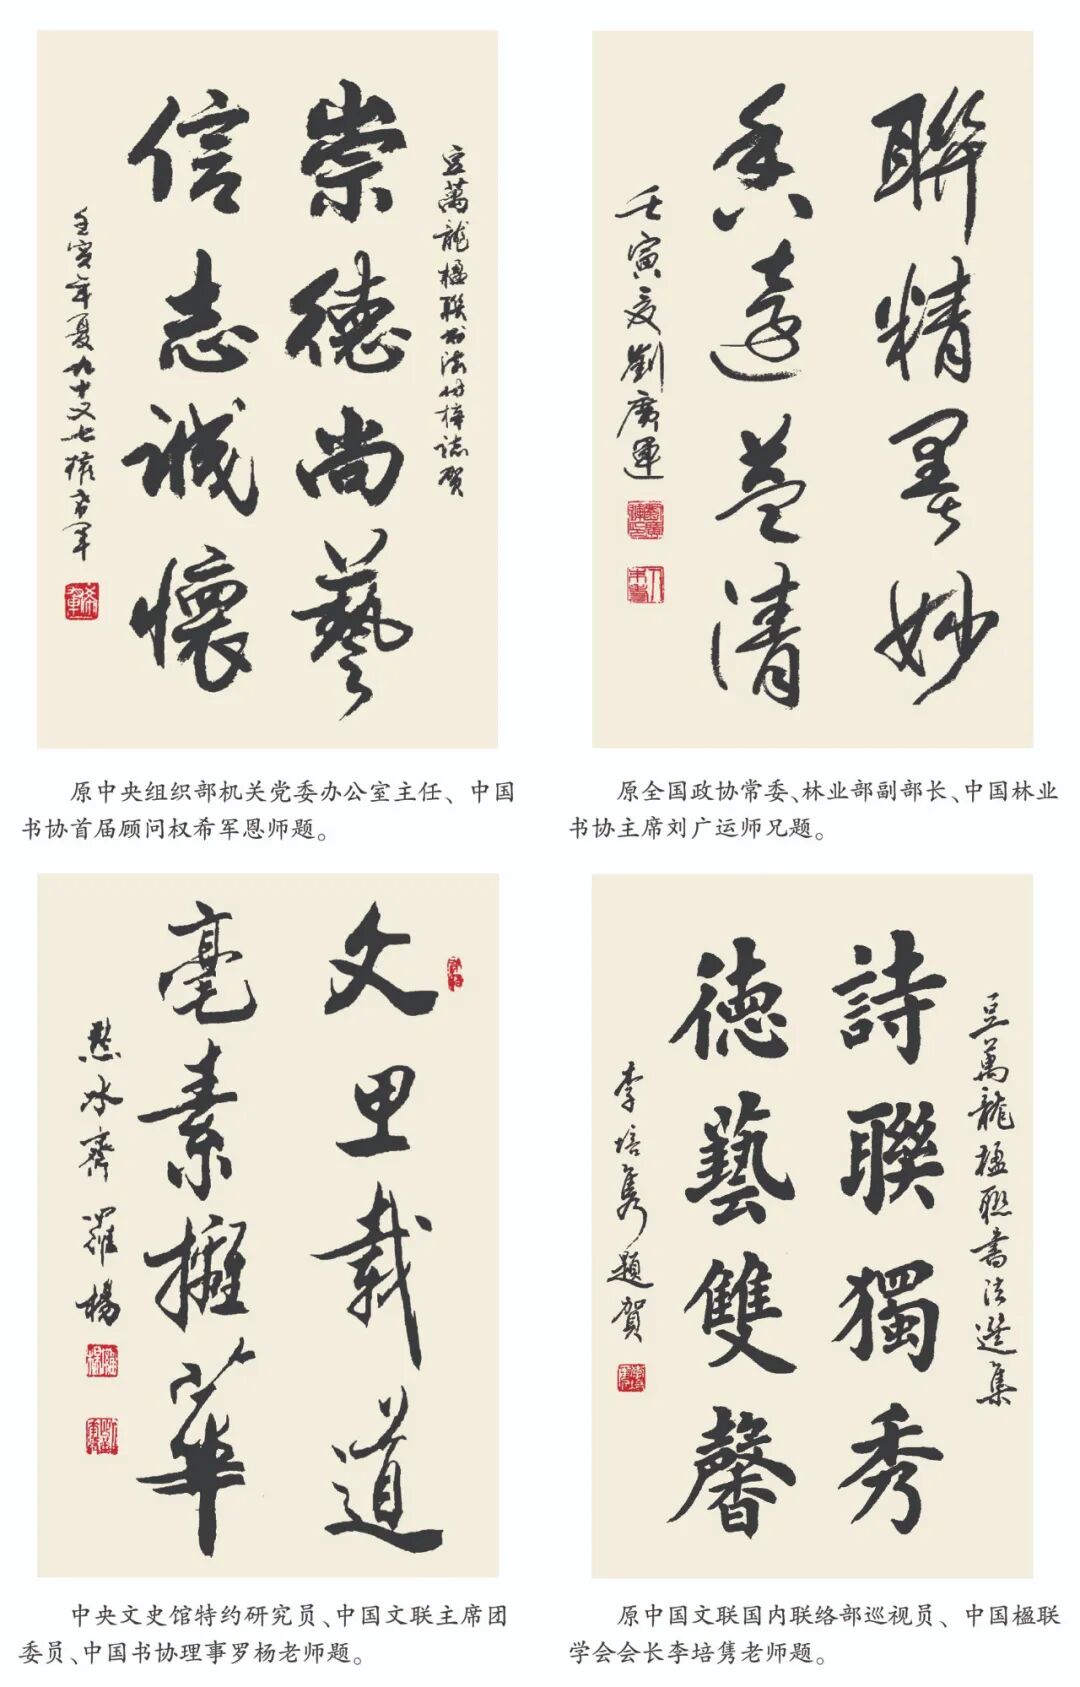 豆萬龍楹联书法付梓志贺
崇德尚藝
信志誠懷
壬寅年夏九十又七權希军
聯精墨妙
香遠益清
壬寅夏劉廣運
原中央组织部机关党委办公室主任、中国
书协首届顾问权希军恩师题。
原全国政协常委、林业部副部长、中国林业
书协主席刘广运师兄题。
文里载道
毫素擁華
水齋羅楊
豆萬龍楹聯書法選集
詩聯獨秀
德藝雙馨
李培隽題賀
中央文史馆特约研究员、中国文联主席团
委员、中国书协理事罗杨老师题。
原中国文联国内联络部巡视员、中国楹联
学会会长李培隽老师题。